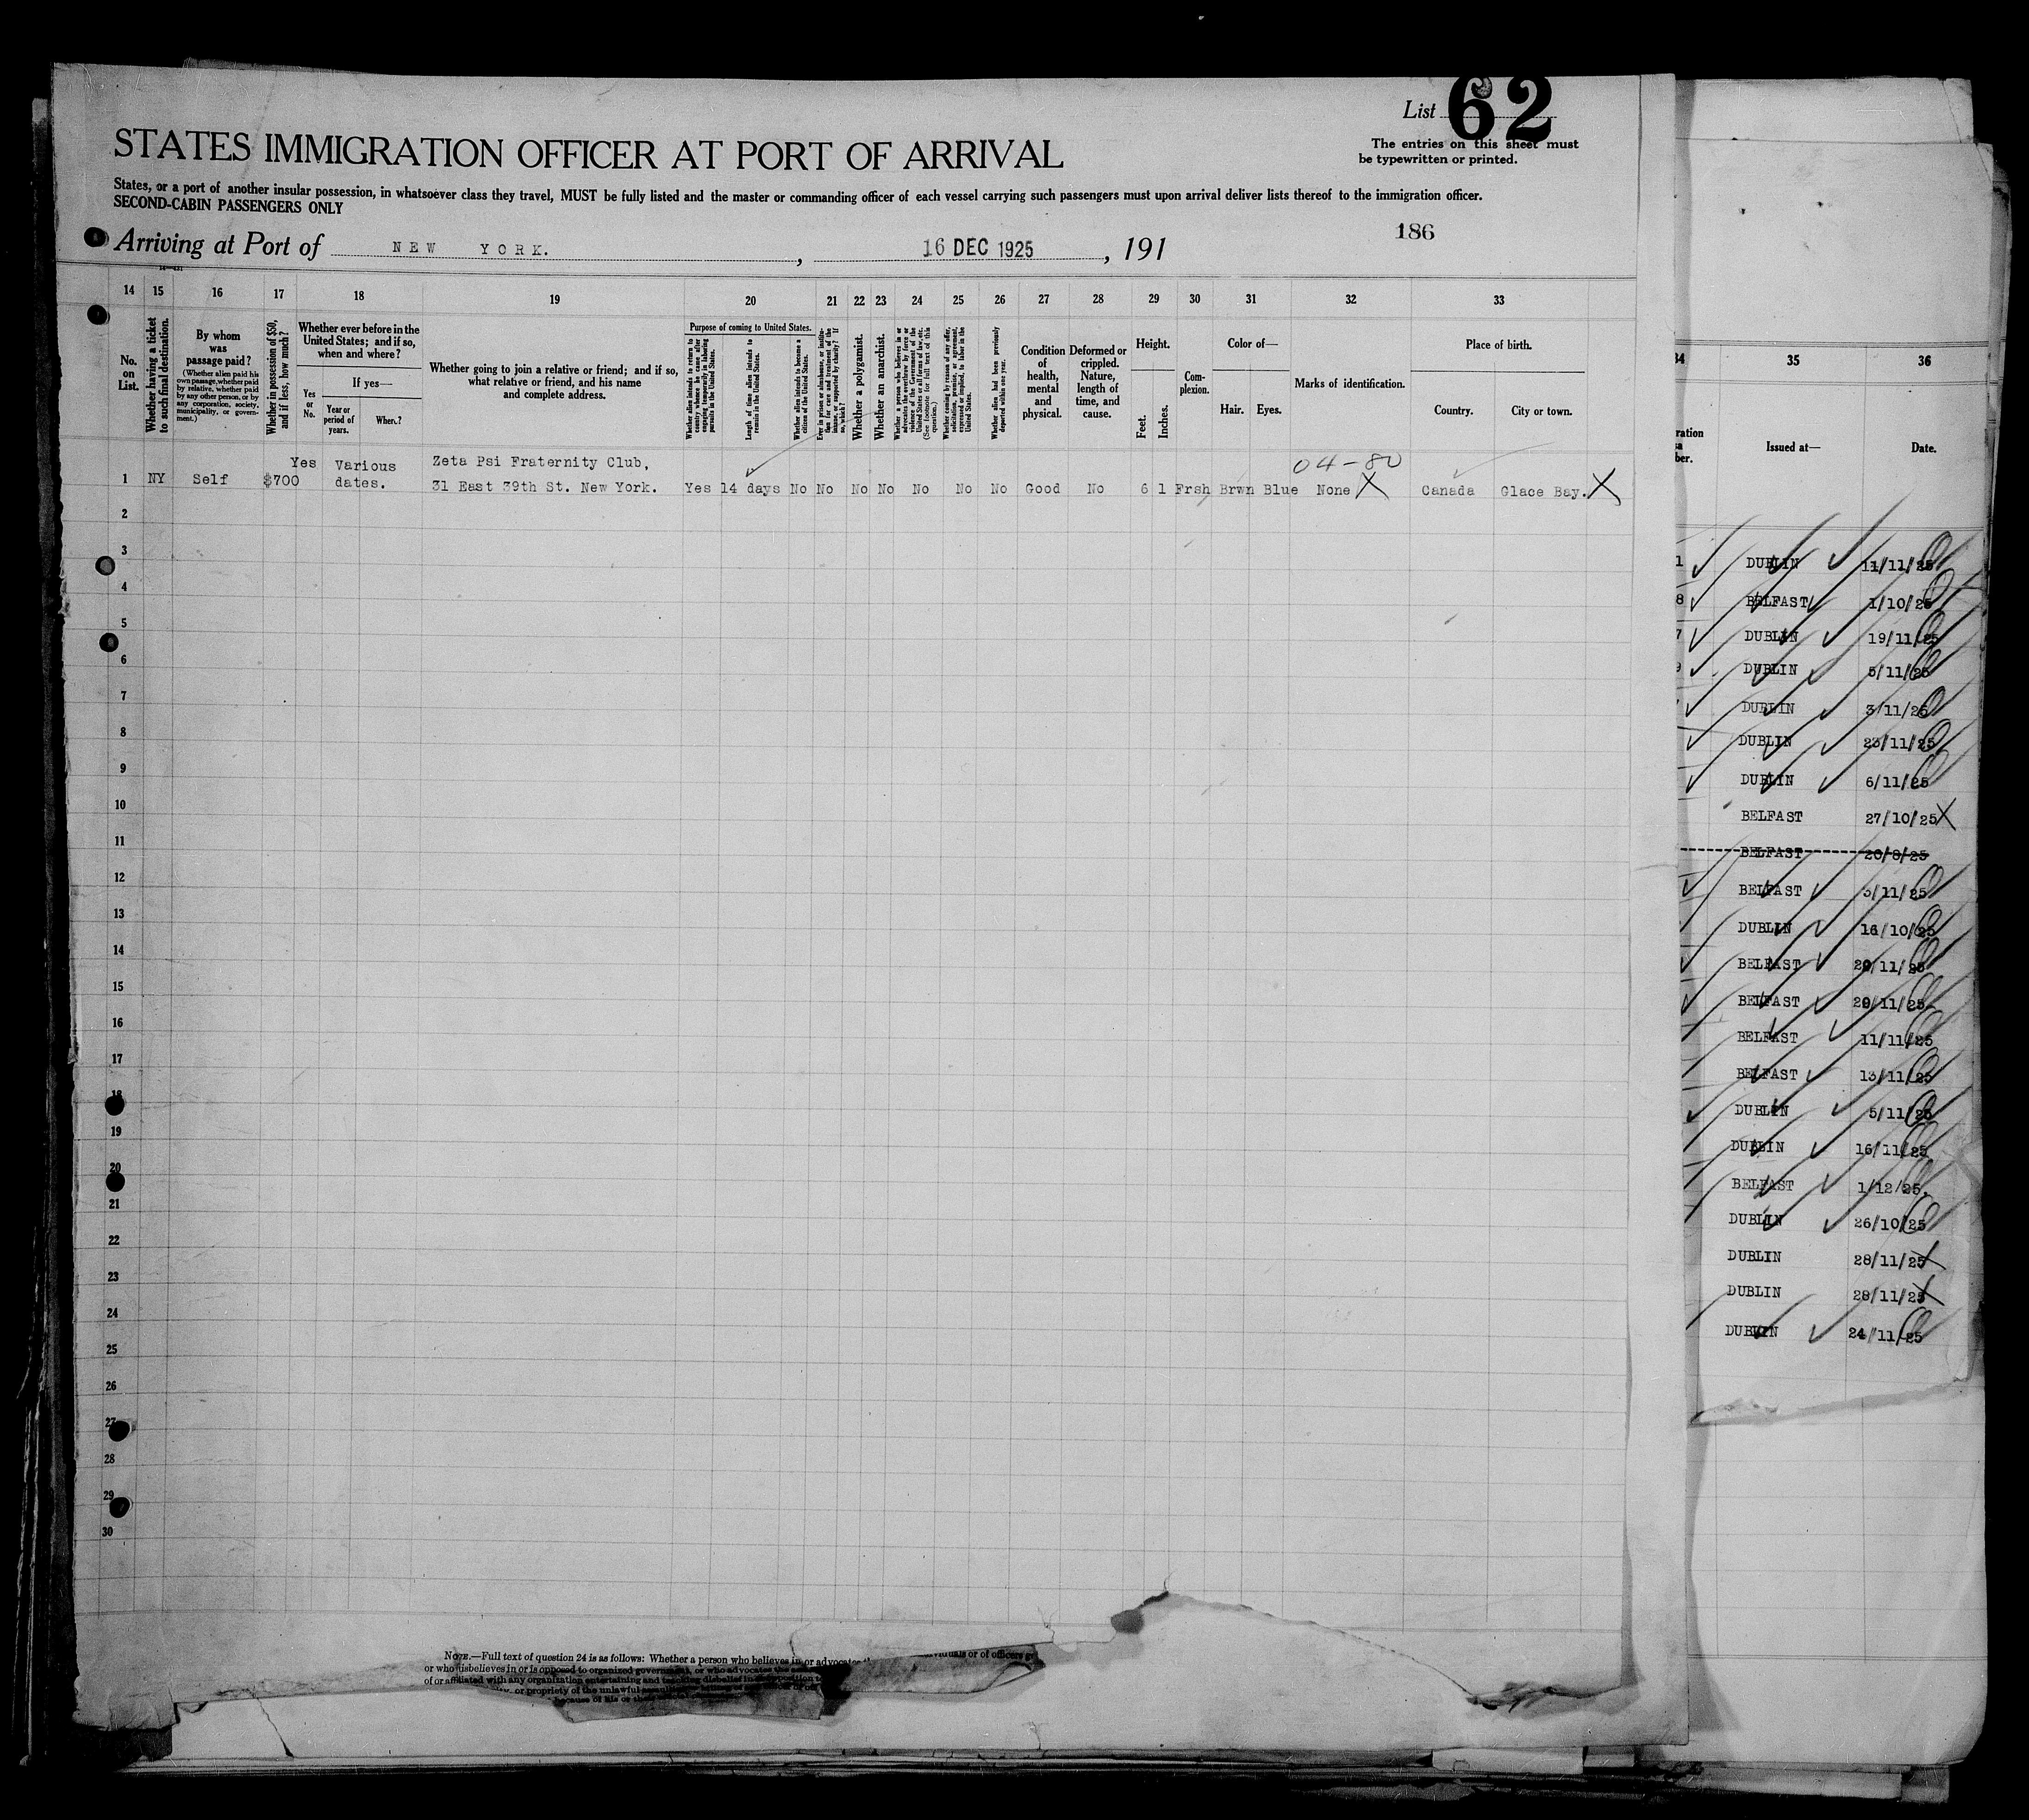 List 62
The entries on this sheet must
be typewritten or printed.
STATES IMMIGRATION OFFICER AT PORT OF ARRIVAL
States, or a port of another insular possession, in whatsoever class they travel, MUST be fully listed and the master or commanding officer of each vessel carrying such passengers must upon arrival deliver lists thereof to the immigration officer.
SECOND-CABIN PASSENGERS ONLY
186
Arriving at Port of NEW YORK. , 16 DEC 1925 , 191
14 15 16 17 18 19 20 21 22 23 24 25 26 27 28 29 30 31 32 33
No. on List.
Whether having a ticket to such final destination.
By whom was passage paid?
(Whether alien paid his own passage, whether paid by relative, whether paid by any other person, or by any corporation, society, municipality, or government.)
Whether in possession of $50, and if less, how much?
Whether ever before in the United States; and if so, when and where?
Yes or No.
If yes—
Year or period of years.
Where?
Whether going to join a relative or friend; and if so, what relative or friend, and his name and complete address.
Purpose of coming to United States.
Whether alien intends to return to country whence he came after engaging temporarily in laboring pursuits in the United States.
Length of time alien intends to remain in the United States.
Whether alien intends to become a citizen of the United States.
Ever in prison or almshouse, or institution for care and treatment of the insane, or supported by charity? If so, which?
Whether a polygamist.
Whether an anarchist.
Whether a person who believes in or advocates the overthrow by force or violence of the Government of the United States or all forms of law, etc. (See footnote for full text of this question.)
Whether coming by reason of any offer, solicitation, promise, or agreement, expressed or implied, to labor in the United States.
Whether alien had been previously deported within one year.
Condition of health, mental and physical.
Deformed or crippled. Nature, length of time, and cause.
Height.
Feet. Inches.
Complexion.
Color of—
Hair. Eyes.
Marks of identification.
Place of birth.
Country. City or town.
Yes Various Zeta Psi Fraternity Club, 04-80
1 NY Self $700 dates. 31 East 39th St. New York. Yes 14 days No No No No No No No Good No 6 1 Frsh Brwn Blue None X Canada Glace Bay. X
2
3
4
5
6
7
8
9
10
11
12
13
14
15
16
17
18
19
20
21
22
23
24
25
26
27
28
29
30
NOTE.—Full text of question 24 is as follows: Whether a person who believes in or advocates
or who disbelieves in or is opposed to organized government, or who advocates the
of or affiliated with any organization entertaining and teaching disbelief in
or propriety of the unlawful
because of his or their
34 35 36
Issued at— Date.
1 DUBLIN 11/11/25
8 BELFAST 1/10/25
7 DUBLIN 19/11/25
9 DUBLIN 5/11/25
DUBLIN 3/11/25
DUBLIN 23/11/25
DUBLIN 6/11/25
BELFAST 27/10/25 X
BELFAST 20/8/25
BELFAST 3/11/25
DUBLIN 16/10/25
BELFAST 20/11/25
BELFAST 20/11/25
BELFAST 11/11/25
BELFAST 13/11/25
DUBLIN 5/11/25
DUBLIN 16/11/25
BELFAST 1/12/25.
DUBLIN 26/10/25
DUBLIN 28/11/25
DUBLIN 28/11/25
DUBLIN 24/11/25